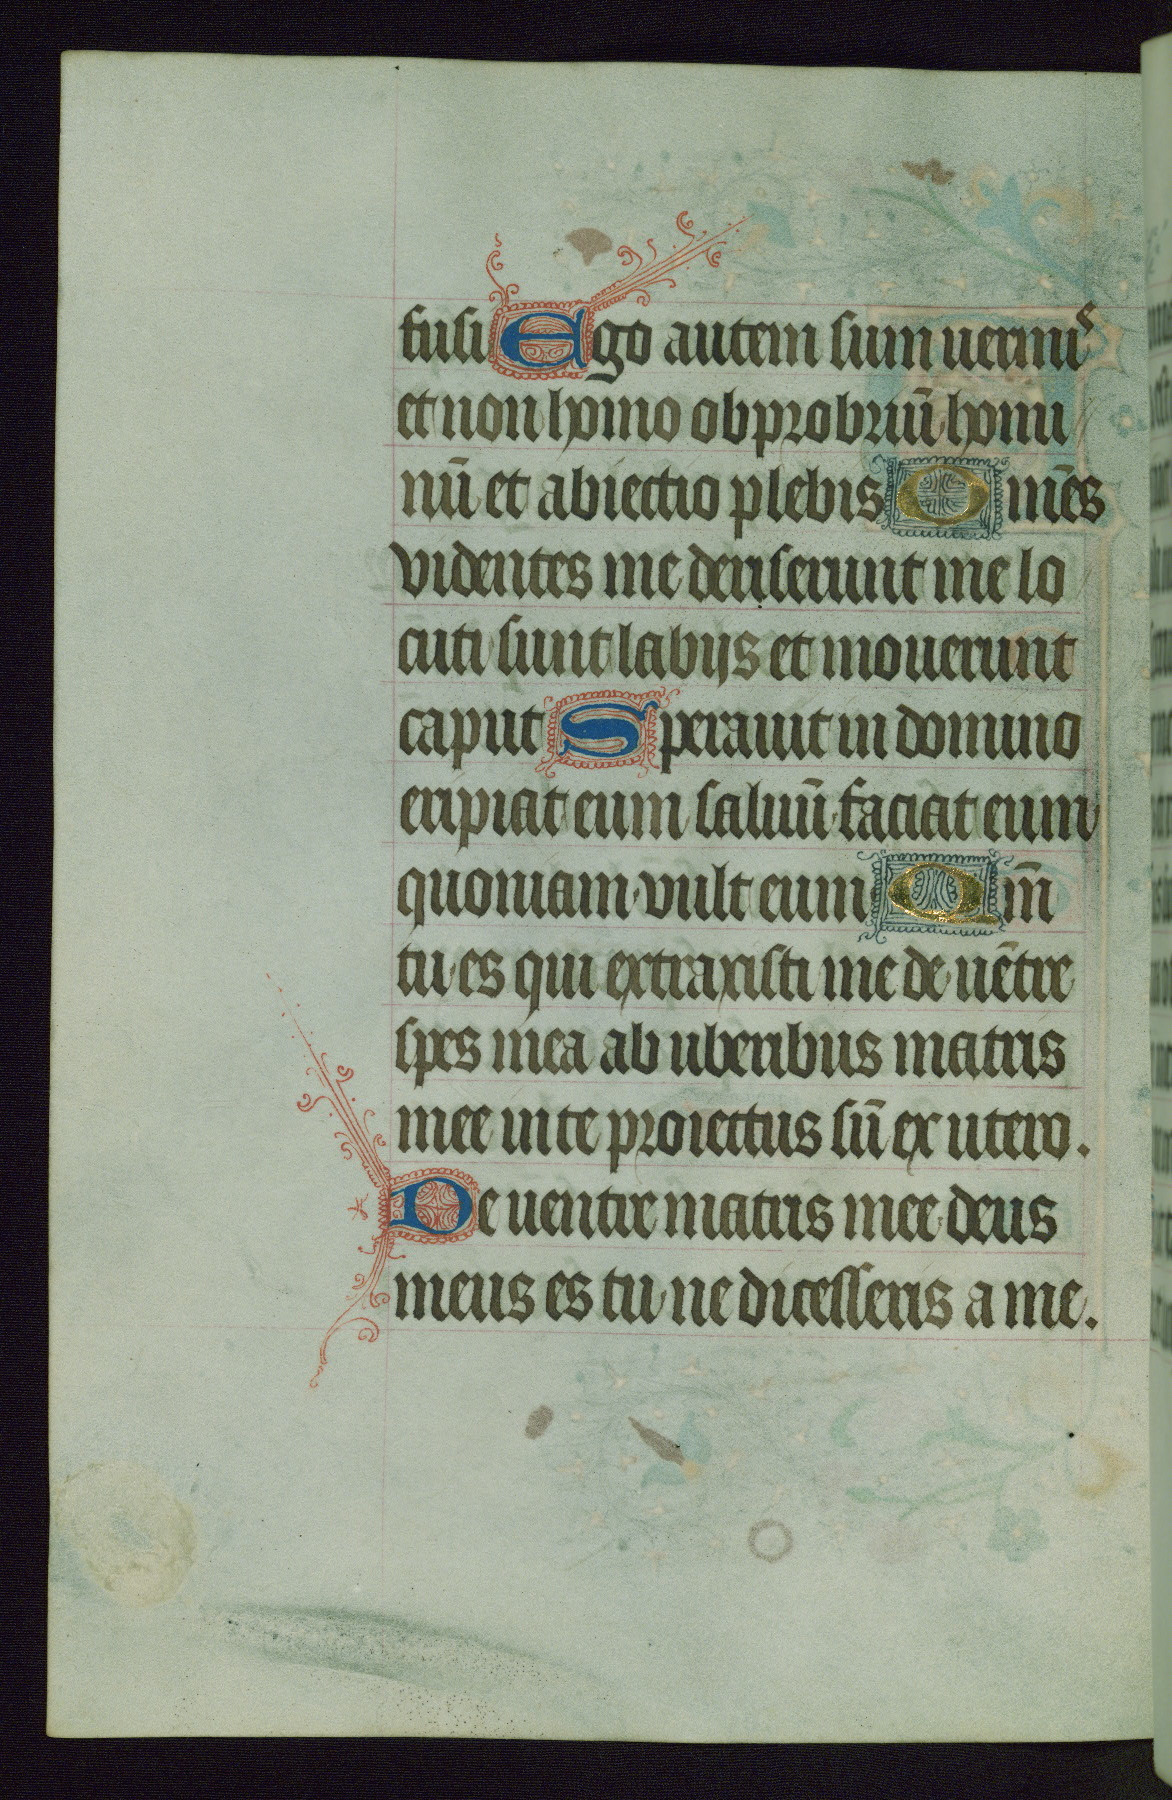 fusi Ego autem sum uermis
et non homo obprobriū homi
nū et abiectio plebis Om̄es
videntes me deriserunt me lo
cuti sunt labijs et mouerunt
caput Sperauit in domino
eripiat eum saluū faciat eum
quoniam vult eum Qm̄
tu es qui extraxisti me de uētre
spes mea ab uberibus matris
mee in te proiectus sū ex utero.
De uentre matris mee deus
meus es tu ne dicesseris a me.